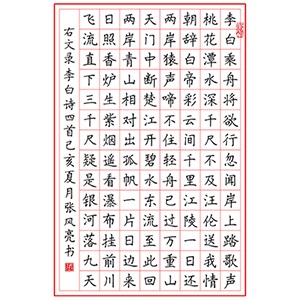 李白乘舟将欲行忽闻岸上踏歌声
桃花潭水深千尺不及汪伦送我情
朝辞白帝彩云间千里江陵一日还
两岸猿声啼不住轻舟已过万重山
天门中断楚江开碧水东流至此回
两岸青山相对出孤帆一片日边来
日照香炉生紫烟遥看瀑布挂前川
飞流直下三千尺疑是银河落九天
右文录李白诗四首己亥夏月张风亮书